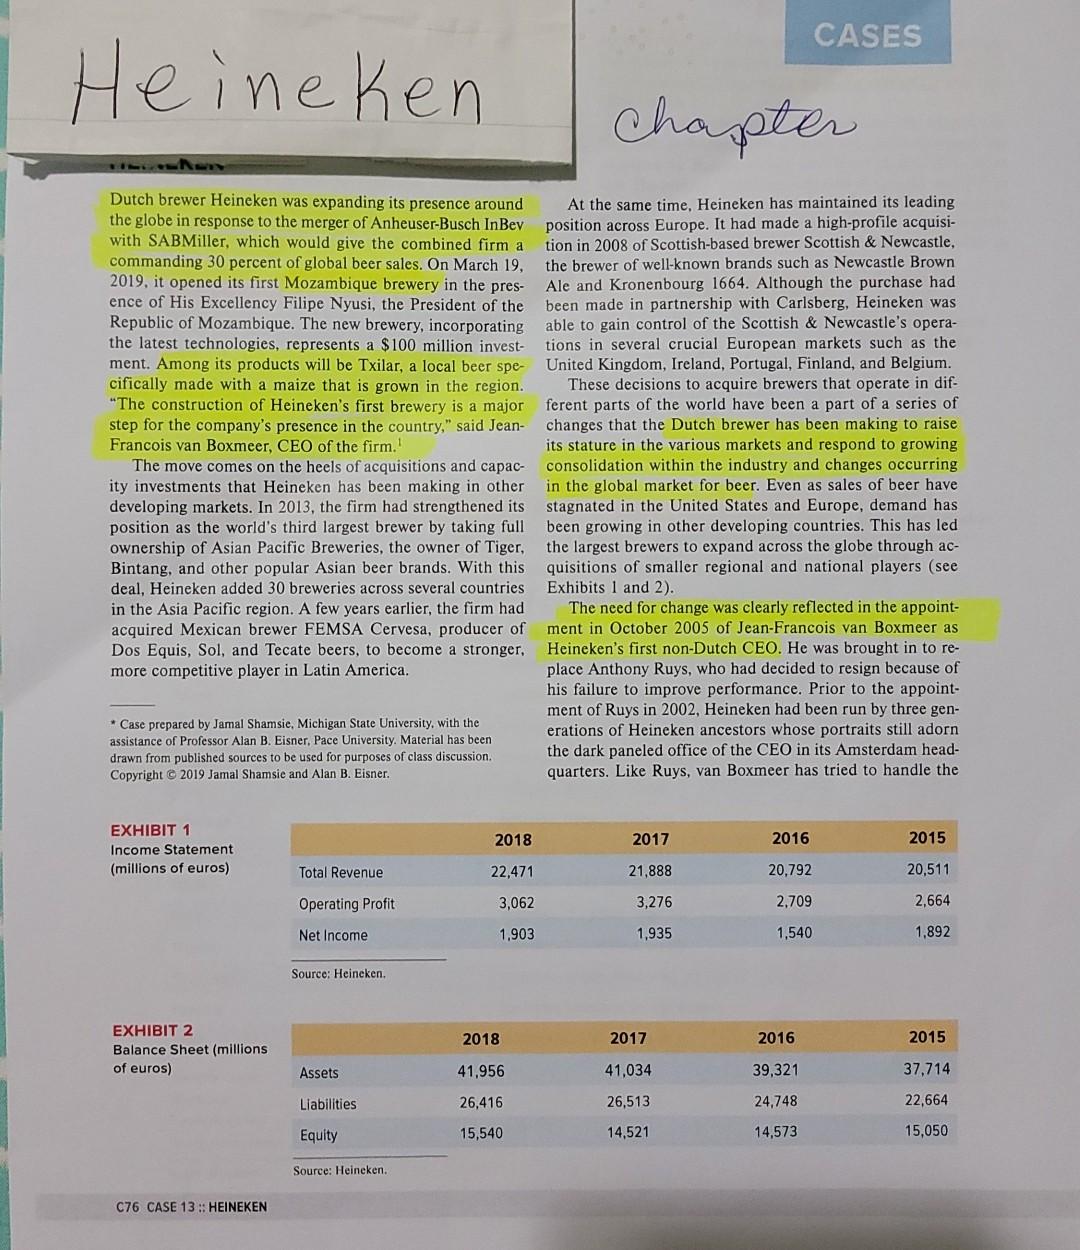 CASES
Heineken
chapter
Dutch brewer Heineken was expanding its presence around
the globe in response to the merger of Anheuser-Busch InBev
with SABMiller, which would give the combined firm a
commanding 30 percent of global beer sales. On March 19,
2019, it opened its first Mozambique brewery in the pres-
ence of His Excellency Filipe Nyusi, the President of the
Republic of Mozambique. The new brewery, incorporating
the latest technologies, represents a $100 million invest-
ment. Among its products will be Txilar, a local beer spe-
cifically made with a maize that is grown in the region.
“The construction of Heineken’s first brewery is a major
step for the company’s presence in the country,” said Jean-
Francois van Boxmeer, CEO of the firm.1
The move comes on the heels of acquisitions and capac-
ity investments that Heineken has been making in other
developing markets. In 2013, the firm had strengthened its
position as the world’s third largest brewer by taking full
ownership of Asian Pacific Breweries, the owner of Tiger,
Bintang, and other popular Asian beer brands. With this
deal, Heineken added 30 breweries across several countries
in the Asia Pacific region. A few years earlier, the firm had
acquired Mexican brewer FEMSA Cervesa, producer of
Dos Equis, Sol, and Tecate beers, to become a stronger,
more competitive player in Latin America.
* Case prepared by Jamal Shamsie, Michigan State University, with the
assistance of Professor Alan B. Eisner, Pace University. Material has been
drawn from published sources to be used for purposes of class discussion.
Copyright © 2019 Jamal Shamsie and Alan B. Eisner.
At the same time, Heineken has maintained its leading
position across Europe. It had made a high-profile acquisi-
tion in 2008 of Scottish-based brewer Scottish & Newcastle,
the brewer of well-known brands such as Newcastle Brown
Ale and Kronenbourg 1664. Although the purchase had
been made in partnership with Carlsberg, Heineken was
able to gain control of the Scottish & Newcastle’s opera-
tions in several crucial European markets such as the
United Kingdom, Ireland, Portugal, Finland, and Belgium.
These decisions to acquire brewers that operate in dif-
ferent parts of the world have been a part of a series of
changes that the Dutch brewer has been making to raise
its stature in the various markets and respond to growing
consolidation within the industry and changes occurring
in the global market for beer. Even as sales of beer have
stagnated in the United States and Europe, demand has
been growing in other developing countries. This has led
the largest brewers to expand across the globe through ac-
quisitions of smaller regional and national players (see
Exhibits 1 and 2).
The need for change was clearly reflected in the appoint-
ment in October 2005 of Jean-Francois van Boxmeer as
Heineken’s first non-Dutch CEO. He was brought in to re-
place Anthony Ruys, who had decided to resign because of
his failure to improve performance. Prior to the appoint-
ment of Ruys in 2002, Heineken had been run by three gen-
erations of Heineken ancestors whose portraits still adorn
the dark paneled office of the CEO in its Amsterdam head-
quarters. Like Ruys, van Boxmeer has tried to handle the
EXHIBIT 1
Income Statement
(millions of euros)
2018 2017 2016 2015
Total Revenue 22,471 21,888 20,792 20,511
Operating Profit 3,062 3,276 2,709 2,664
Net Income 1,903 1,935 1,540 1,892
Source: Heineken.
EXHIBIT 2
Balance Sheet (millions
of euros)
2018 2017 2016 2015
Assets 41,956 41,034 39,321 37,714
Liabilities 26,416 26,513 24,748 22,664
Equity 15,540 14,521 14,573 15,050
Source: Heineken.
C76 CASE 13 :: HEINEKEN